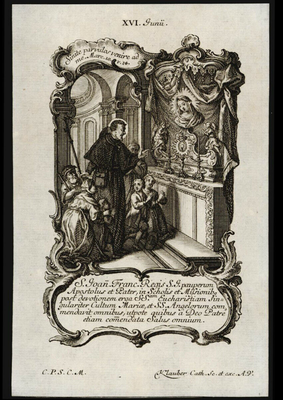 XVI. Junii.
Sinite parvulos venire ad
me. Marc. 10. v. 14.
S. Joan. Franc. Regis S. J. pauperum
Apostolus et Pater, in Scholis et Missionib.
post devotionem erga SS. Eucharistiam sin-
gulariter Cultum Mariæ, et SS. Angelorum com
mendavit omnibus, utpote quibus a Deo Patre
etiam comendata Salus omnium.
C. P. S. C. M.
Klauber Cath. Sc. et exc. A.V.